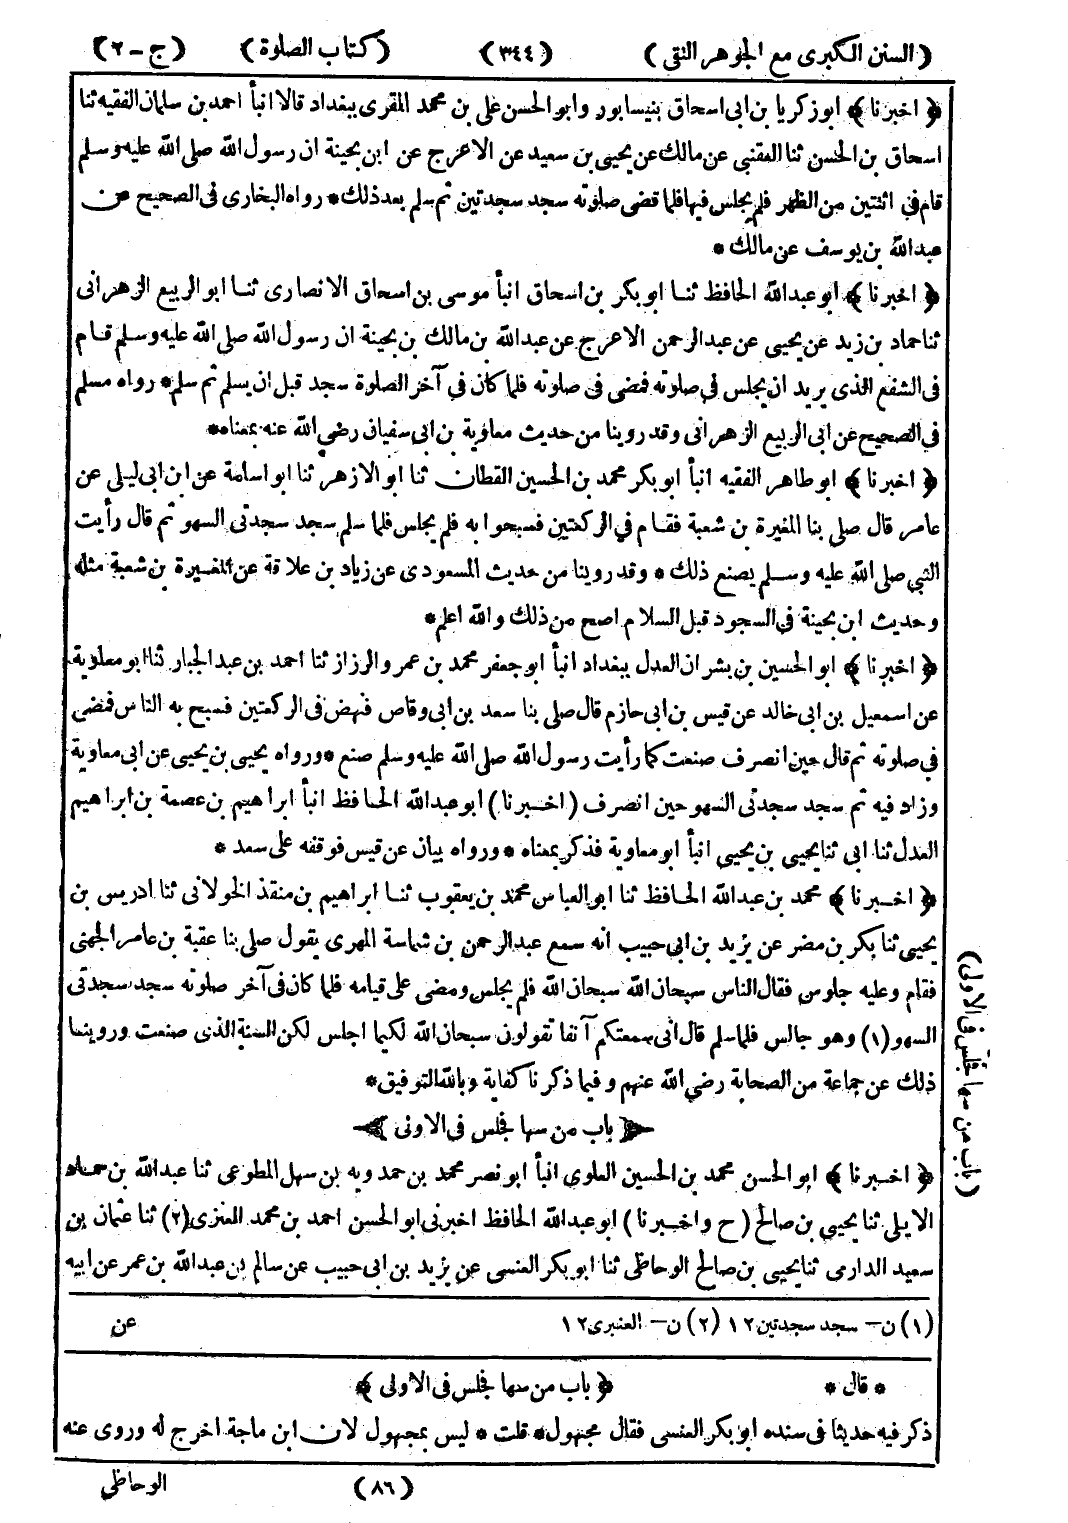 (السنن الكبرى مع الجوهر النقى) (٣٤٤) (كتاب الصلوة) (ج-٢)
﴿ اخبرنا ﴾ ابوزكريا بن ابى اسحاق بنيسابور وابو الحسن على بن محمد المقرى ببغداد قالا انبأ احمد بن سلمان الفقيه ثنا
اسحاق بن الحسن ثنا القعنبى عن مالك عن يحيى بن سعيد عن الاعرج عن ابن بحينة ان رسول الله صلى الله عليه وسلم
قام فى اثنتين من الظهر فلم يجلس فيها فلما قضى صلوته سجد سجدتين ثم سلم بعد ذلك * رواه البخارى فى الصحيح عن
عبدالله بن يوسف عن مالك *
﴿ اخبرنا ﴾ ابوعبدالله الحافظ ثنا ابو بكر بن اسحاق انبأ موسى بن اسحاق الانصارى ثنا ابو الربيع الزهرانى
ثنا حماد بن زيد عن يحيى عن عبدالرحمن الاعرج عن عبدالله بن مالك بن بحينة ان رسول الله صلى الله عليه وسلم قام
فى الشفع الذى يريد ان يجلس فى صلوته فمضى فى صلوته فلما كان فى آخر الصلوة سجد قبل ان يسلم ثم سلم * رواه مسلم
فى الصحيح عن ابى الربيع الزهرانى وقد روينا من حديث معاوية بن ابى سفيان رضى الله عنه بمعناه *
﴿ اخبرنا ﴾ ابو طاهر الفقيه انبأ ابو بكر محمد بن الحسين القطان ثنا ابو الازهر ثنا ابو اسامة عن ابن ابى ليلى عن
عامر قال صلى بنا المغيرة بن شعبة فقام فى الركعتين فسبحوا به فلم يجلس فلما سلم سجد سجدتى السهو ثم قال رأيت
النبى صلى الله عليه وسلم يصنع ذلك * وقد روينا من حديث المسعودى عن زياد بن علاقة عن المغيرة بن شعبة مثله
وحديث ابن بحينة فى السجود قبل السلام اصح من ذلك والله اعلم *
﴿ اخبرنا ﴾ ابو الحسين بن بشران العدل ببغداد انبأ ابو جعفر محمد بن عمرو الرزاز ثنا احمد بن عبد الجبار ثنا ابو معاوية
عن اسمعيل بن ابى خالد عن قيس بن ابى حازم قال صلى بنا سعد بن ابى وقاص فنهض فى الركعتين فسبح به الناس فمضى
فى صلوته ثم قال حين انصرف صنعت كما رأيت رسول الله صلى الله عليه وسلم صنع * ورواه يحيى بن يحيى عن ابى معاوية
وزاد فيه ثم سجد سجدتى السهو حين انصرف (اخبرنا) ابو عبدالله الحافظ انبأ ابراهيم بن عصمة بن ابراهيم
العدل ثنا ابى ثنا يحيى بن يحيى انبأ ابو معاوية فذكر بمعناه * ورواه بيان عن قيس فوقفه على سعد *
﴿ اخبرنا ﴾ محمد بن عبدالله الحافظ ثنا ابو العباس محمد بن يعقوب ثنا ابراهيم بن منقذ الخولانى ثنا ادريس بن
يحيى ثنا بكر بن مضر عن يزيد بن ابى حبيب انه سمع عبدالرحمن بن شماسة المهرى يقول صلى بنا عقبة بن عامر الجهنى
فقام وعليه جلوس فقال الناس سبحان الله سبحان الله فلم يجلس ومضى على قيامه فلما كان فى آخر صلوته سجد سجدتى
السهو (١) وهو جالس فلما سلم قال انى سمعتكم آنفا تقولون سبحان الله لكيما اجلس لكن السنة الذى صنعت وروينا
ذلك عن جماعة من الصحابة رضى الله عنهم وفيما ذكرنا كفاية وبالله التوفيق *
باب من سها فجلس فى الاولى
﴿ اخبرنا ﴾ ابو الحسن محمد بن الحسين العلوى انبأ ابو نصر محمد بن حمدويه بن سهل المطوعى ثنا عبدالله بن حماد
الايلى ثنا يحيى بن صالح (ح واخبرنا) ابو عبدالله الحافظ اخبرنى ابو الحسن احمد بن محمد العنزى (٢) ثنا عثمان بن
سعيد الدارمى ثنا يحيى بن صالح الوحاظى ثنا ابو بكر العنسى عن يزيد بن ابى حبيب عن سالم بن عبدالله بن عمر عن ابيه
(باب من سها فجلس فى الاولى)
(١) ن- سجد سجدتين ١٢ (٢) ن- العنبرى ١٢ عن
* قال * ﴿ باب من سها فجلس فى الاولى ﴾
ذكر فيه حديثا فى سنده ابو بكر العنسى فقال مجهول * قلت * ليس بمجهول لان ابن ماجة اخرج له وروى عنه
(٨٦) الوحاظى